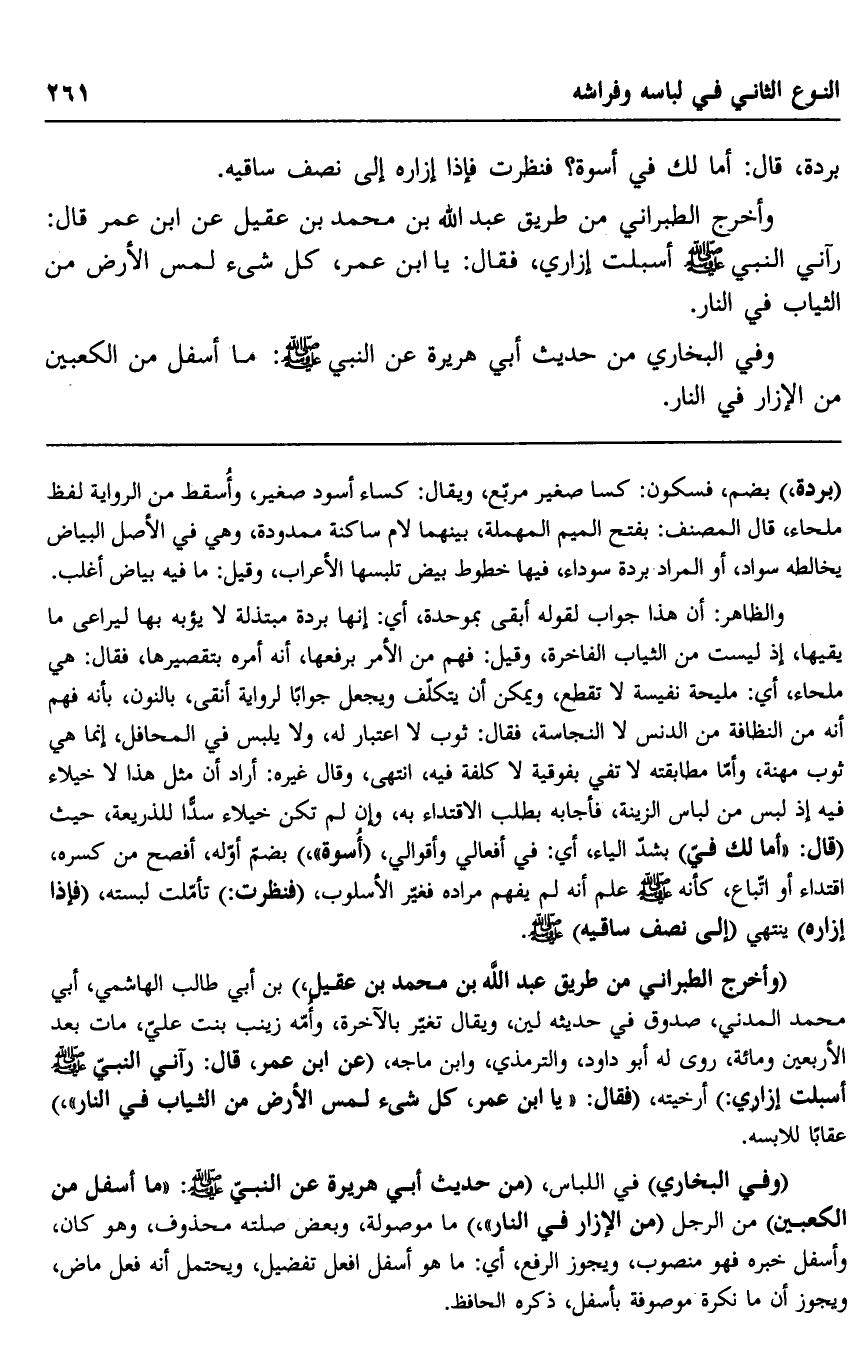 النوع الثاني في لباسه وفراشه ٢٦١
بردة، قال: أما لك في أسوة؟ فنظرت فإذا إزاره إلى نصف ساقيه.
وأخرج الطبراني من طريق عبد الله بن محمد بن عقيل عن ابن عمر قال:
رآني النبي ﷺ أسبلت إزاري، فقال: يا ابن عمر، كل شىء لمس الأرض من
الثياب في النار.
وفي البخاري من حديث أبي هريرة عن النبي ﷺ: ما أسفل من الكعبين
من الإزار في النار.
(بردة،) بضم، فسكون: كسا صغير مربّع، ويقال: كساء أسود صغير، وأُسقط من الرواية لفظ
ملحاء، قال المصنف: بفتح الميم المهملة، بينهما لام ساكنة ممدودة، وهي في الأصل البياض
يخالطه سواد، أو المراد بردة سوداء، فيها خطوط بيض تلبسها الأعراب، وقيل: ما فيه بياض أغلب.
والظاهر: أن هذا جواب لقوله أبقى بموحدة، أي: إنها بردة مبتذلة لا يؤبه بها ليراعى ما
يقيها، إذ ليست من الثياب الفاخرة، وقيل: فهم من الأمر برفعها، أنه أمره بتقصيرها، فقال: هي
ملحاء، أي: مليحة نفيسة لا تقطع، ويمكن أن يتكلّف ويجعل جوابًا لرواية أنقى، بالنون، بأنه فهم
أنه من النظافة من الدنس لا النجاسة، فقال: ثوب لا اعتبار له، ولا يلبس في المحافل، إنما هي
ثوب مهنة، وأمّا مطابقته لا تفي بفوقية لا كلفة فيه، انتهى، وقال غيره: أراد أن مثل هذا لا خيلاء
فيه إذ لبس من لباس الزينة، فأجابه بطلب الاقتداء به، وإن لم تكن خيلاء سدًّا للذريعة، حيث
(قال: «أما لك فيّ) بشدّ الياء، أي: في أفعالي وأقوالي، (أُسوة»،) بضمّ أوّله، أفصح من كسره،
اقتداء أو اتّباع، كأنه ﷺ علم أنه لم يفهم مراده فغيّر الأسلوب، (فنظرت:) تأمّلت لبسته، (فإذا
إزاره) ينتهي (إلى نصف ساقيه) ﷺ.
(وأخرج الطبراني من طريق عبد اللَّه بن محمد بن عقيل،) بن أبي طالب الهاشمي، أبي
محمد المدني، صدوق في حديثه لين، ويقال تغيّر بالآخرة، وأُمّه زينب بنت عليّ، مات بعد
الأربعين ومائة، روى له أبو داود، والترمذي، وابن ماجه، (عن ابن عمر، قال: رآني النبيّ ﷺ
أسبلت إزاري:) أرخيته، (فقال: « يا ابن عمر، كل شىء لمس الأرض من الثياب في النار»،)
عقابًا للابسه.
(وفي البخاري) في اللباس، (من حديث أبي هريرة عن النبيّ ﷺ: «ما أسفل من
الكعبين) من الرجل (من الإزار في النار»،) ما موصولة، وبعض صلته محذوف، وهو كان،
وأسفل خبره فهو منصوب، ويجوز الرفع، أي: ما هو أسفل افعل تفضيل، ويحتمل أنه فعل ماض،
ويجوز أن ما نكرة موصوفة بأسفل، ذكره الحافظ.